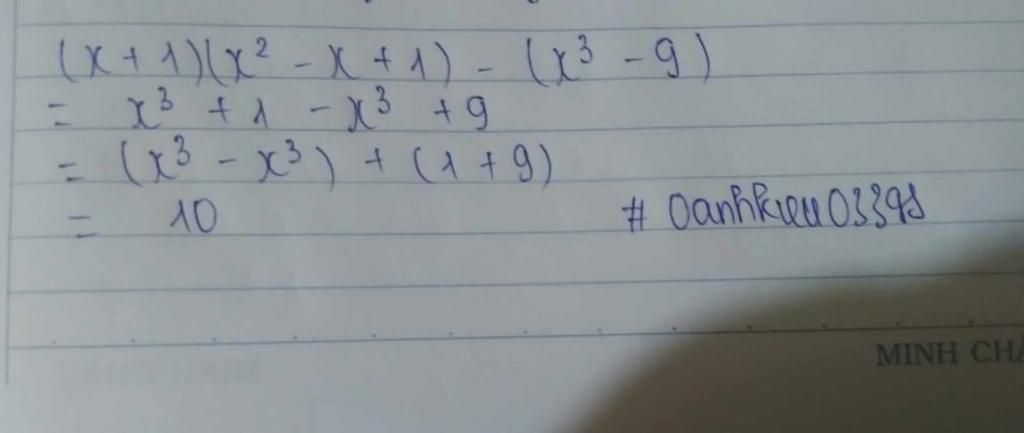 (x + 1)(x² - x + 1) - (x³ - 9)
= x³ + 1 - x³ + 9
= (x³ - x³) + (1 + 9)
= 10 # Oanhkieu03398
MINH CHA